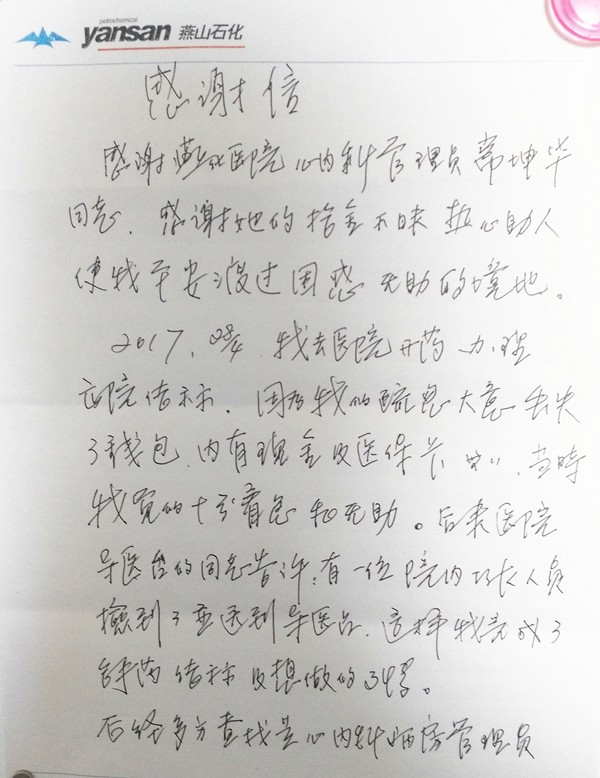 petrochemical
yansan 燕山石化
感谢信
感谢燕化医院心内科管理员常坤华
同志．感谢她的拾金不昧 热心助人
使我平安渡过困惑 无助的境地。
2017． 我去医院开药 办理
出院结标．因为我的疏忽大意 丢失
了钱包．内有现金及医保卡 ．当时
我觉的十分着急和无助。后来医院
导医台的同志告诉，有一位院内工作人员
捡到了并送到导医台．这样我完成了
药 结标及想做的事。
后经多方查找是心内科病房管理员